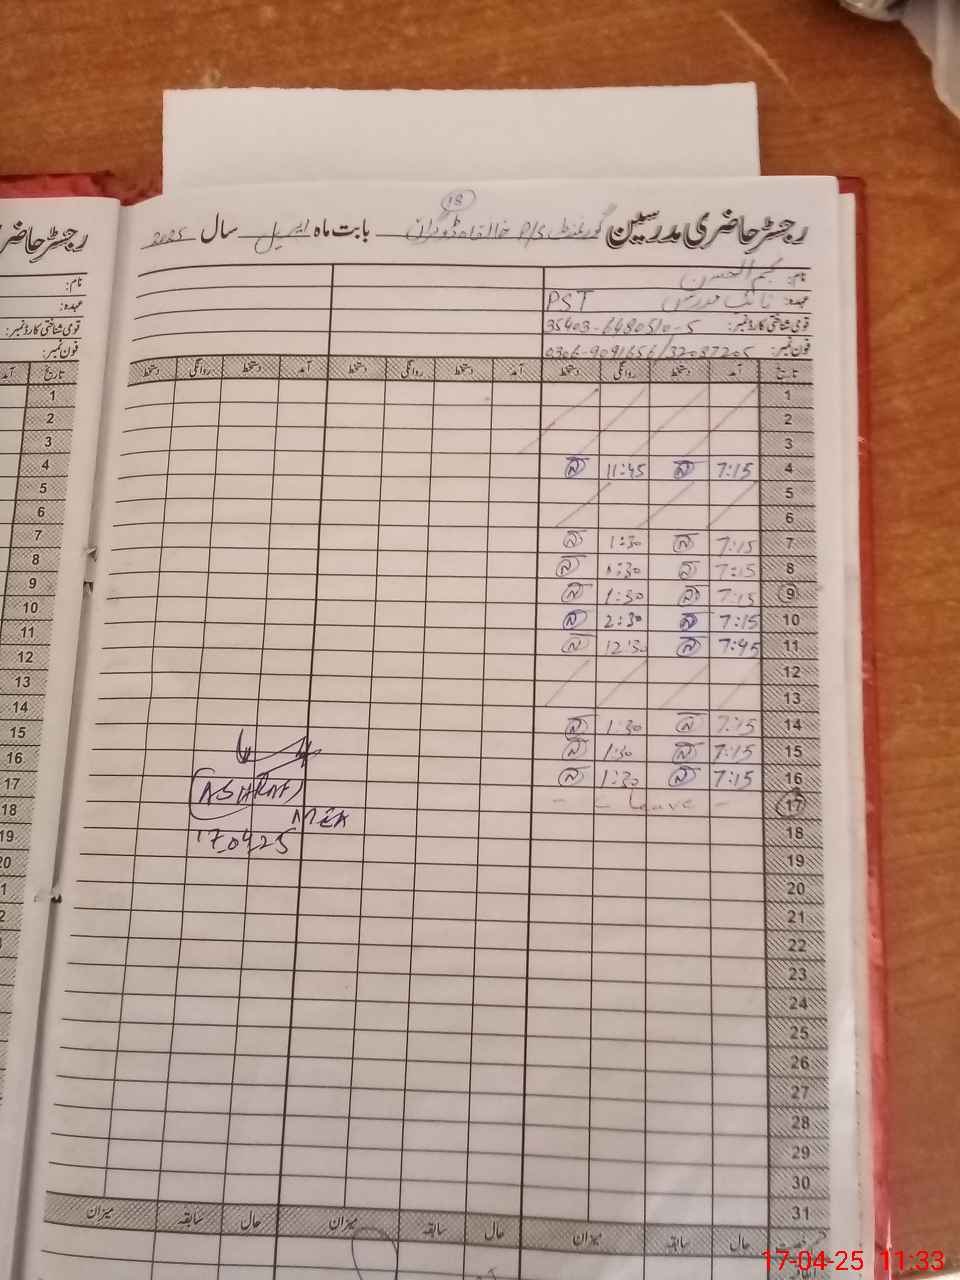 18
رجسٹر حاضری مدرسین گورنمنٹ P/S خانقاہ ڈوگراں بابت ماہ اپریل سال 2025
نام: نجم الحسن
عہدہ: نائب مدرس PST
قومی شناختی کارڈ نمبر: 35403-6480510-5
فون نمبر: 0306-9091656/32087205
تاریخ آمد دستخط روانگی دستخط آمد دستخط روانگی دستخط آمد دستخط روانگی دستخط
1
2
3
4 7:15 11:45
5
6
7 7:15 1:30
8 7:15 1:30
9 7:15 1:30
10 7:15 2:30
11 7:45 12:30
12
13
14 7:15 1:30
15 7:15 1:30
16 7:15 1:30
17 - Leave -
18
19
20
21
22
23
24
25
26
27
28
29
30
31
ASHRAF
MEA
170425
حال سابقہ میزان حال سابقہ میزان حال سابقہ میزان
رجسٹر حاضر
نام:
عہدہ:
قومی شناختی کارڈ نمبر:
فون نمبر:
تاریخ آمد
1
2
3
4
5
6
7
8
9
10
11
12
13
14
15
16
17
18
19
20
17-04-25 11:33